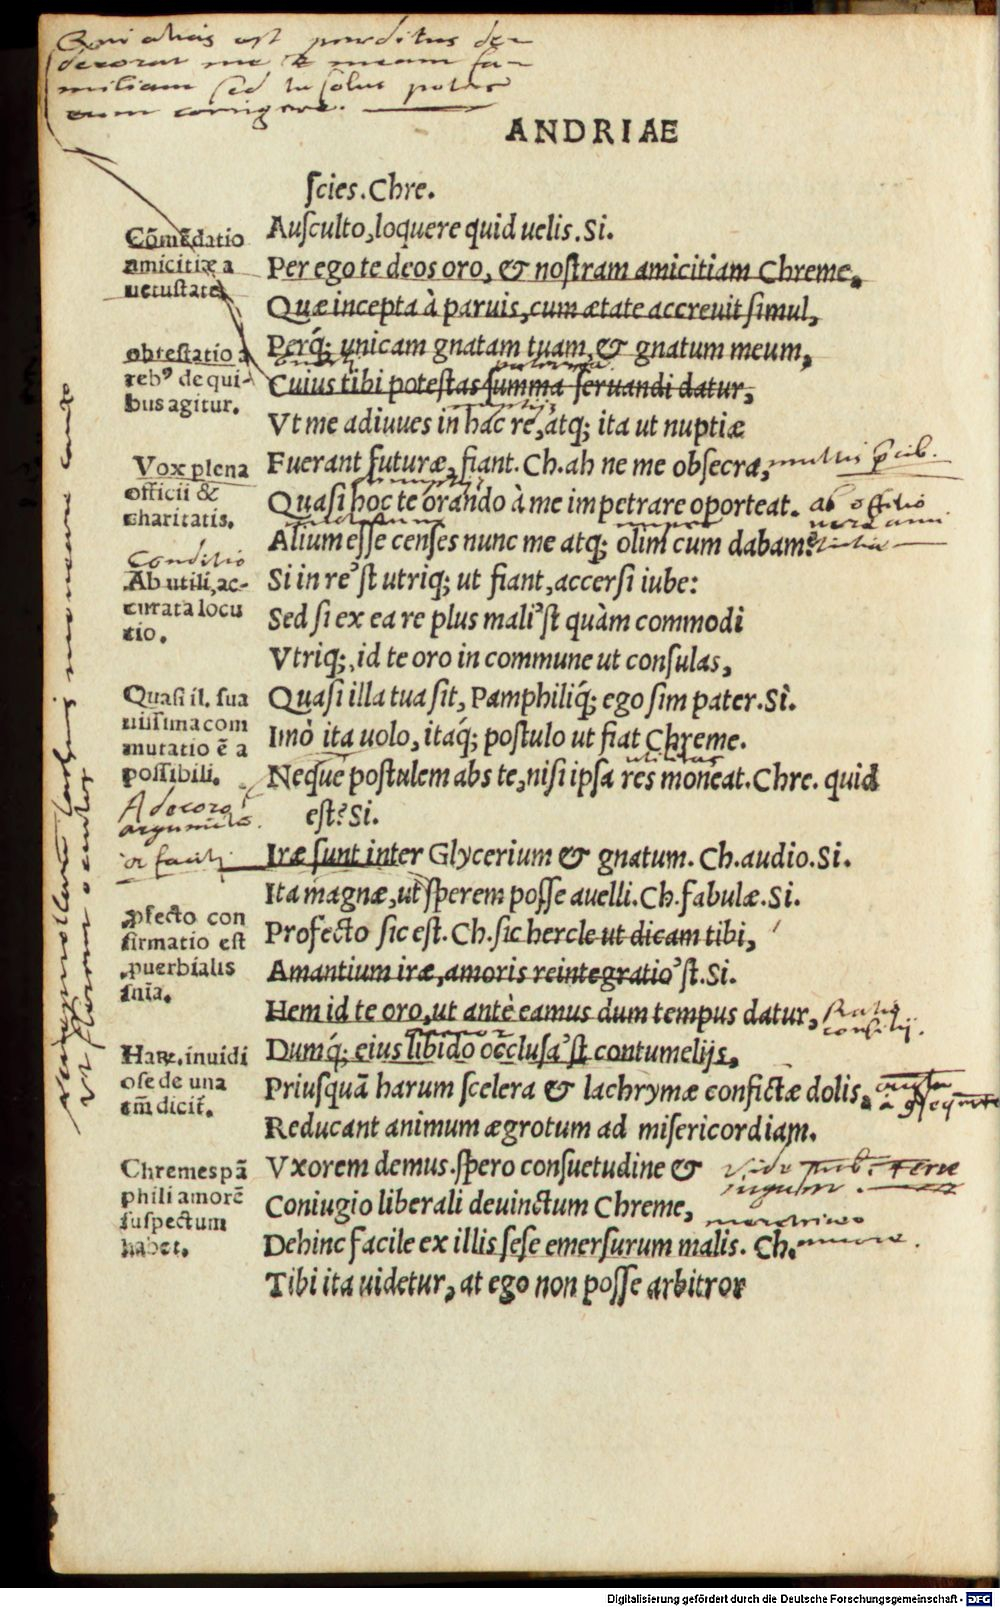 ANDRIAE
ſcies. Chre.
Auſculto, loquere quid uelis. Si.
Per ego te deos oro, & noſtram amicitiam Chreme,
Quæ incepta à paruis, cum ætate accreuit ſimul,
Perq́; unicam gnatam tuam, & gnatum meum,
Cuius tibi poteſtas ſumma ſeruandi datur,
Vt me adiuues in hac re, atq; ita ut nuptiæ
Fuerant futuræ, fiant. Ch. ah ne me obſecra,
Quaſi hoc te orando à me impetrare oporteat.
Alium eſſe cenſes nunc me atq; olim cum dabam?
Si in re'ſt utriq; ut fiant, accerſi iube:
Sed ſi ex ea re plus mali'ſt quàm commodi
Vtriq;, id te oro in commune ut conſulas,
Quaſi illa tua ſit, Pamphiliq́; ego ſim pater. Si.
Imò ita uolo, itaq́; poſtulo ut fiat Chreme.
Neque poſtulem abs te, niſi ipſa res moneat. Chre. quid
eſt? Si.
Iræ ſunt inter Glycerium & gnatum. Ch. audio. Si.
Ita magnæ, ut ſperem poſſe auelli. Ch. fabulæ. Si.
Profecto ſic eſt. Ch. ſic hercle ut dicam tibi,
Amantium iræ, amoris reintegratio'ſt. Si.
Hem id te oro, ut antè eamus dum tempus datur,
Dumq́; eius libido occluſa'ſt contumelijs,
Priuſquā harum ſcelera & lachrymæ confictæ dolis,
Reducant animum ægrotum ad miſericordiam.
Vxorem demus. ſpero conſuetudine &
Coniugio liberali deuinctum Chreme,
Dehinc facile ex illis ſeſe emerſurum malis. Ch.
Tibi ita uidetur, at ego non poſſe arbitror
Cōmēdatio
amicitiæ a
uetuſtate
obteſtatio a
rebꝰ de qui-
bus agitur.
Vox plena
officii &
charitatis.
Conditio
Ab utili, ac-
curata locu
tio.
Quaſi il. ſua
uiſſima com
mutatio ē a
poſſibili.
A decoro
ꝓfecto con
firmatio eſt
ꝓuerbialis
ſnīa.
Haꝝ. inuidi
oſe de una
tm̄ dicit̄.
Chremes pā
phili amorē
ſuſpectum
habet.
Qui alias est perditus de-
decorat me & meam fa-
miliam sed tu solus potes
eum corrigere.
utilitas
Ratio
consilij.